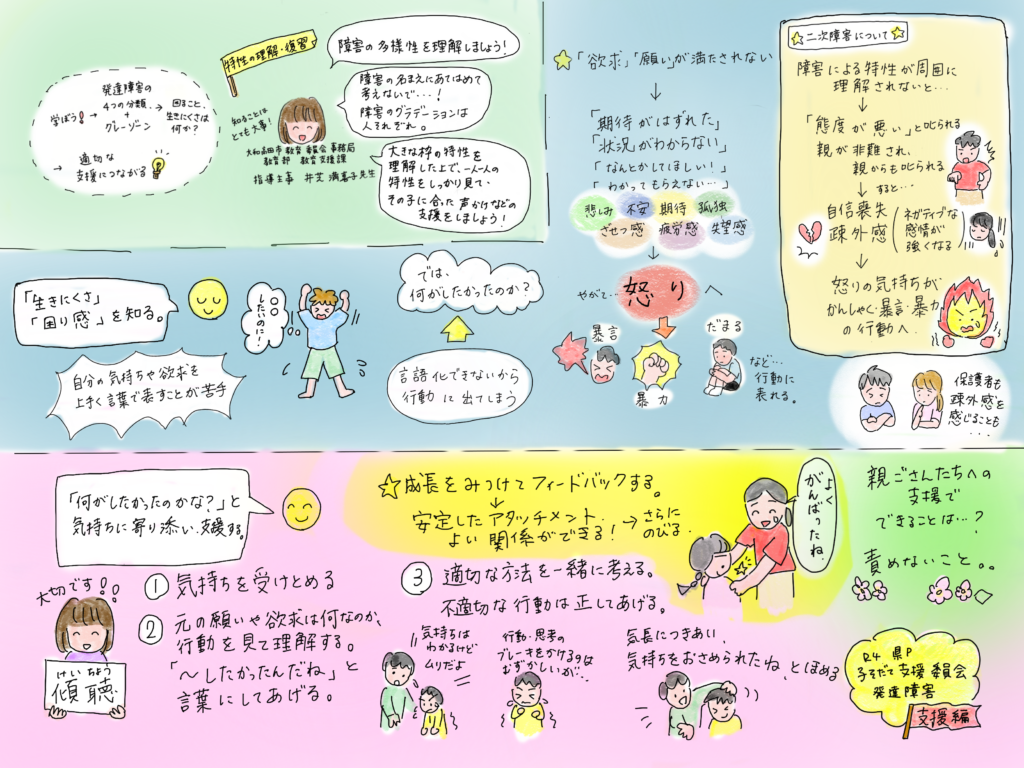 特性の理解・復習
障害の多様性を理解しましょう!
障害の名まえにあてはめて
考えないで…!
障害のグラデーションは
人それぞれ。
大きな枠の特性を
理解した上で、一人一人の
特性をしっかり見て、
その子に合った声かけなどの
支援をしましょう!
発達障害の
4つの分類、
+
グレーゾーン
学ぼう!
→
→
困ること、
生きにくさは
何か?
→ 適切な
支援につながる
知ることは
とても大事!
大和高田市 教育委員会 事務局
教育部 教育支援課
指導主事 井芝 満喜子先生
「生きにくさ」
「困り感」を知る。
自分の気持ちや欲求を
上手く言葉で表すことが苦手
〇〇
したいのに!
では、
何がしたかったのか?
言語化できないから
行動に出てしまう
「欲求」「願い」が満たされない
↓
「期待がはずれた」
「状況」がわからない」
「なんとかしてほしい!」
「わかってもらえない…」
悲しみ 不安 期待 孤独
ざせつ感 疲労感 失望感
↓
やがて… 怒り へ
暴言
暴力
だまる
など…
行動に
表れる。
二次障害について
障害による特性が周囲に
理解されないと…
↓
「態度が悪い」と叱られる
親が非難され、
親からも叱られる
↓ すると…
自信喪失
疎外感
(ネガティブな
感情が
強くなる)
↓
怒りの気持ちが
かんしゃく・暴言・暴力
の行動へ.
保護者も
疎外感を
感じることも
・・・
「何がしたかったのかな?」と
気持ちに寄り添い、支援する。
大切です!!
けいちょう
傾聴
① 気持ちを受けとめる
② 元の願いや欲求は何なのか、
行動を見て理解する。
「〜したかったんだね」と
言葉にしてあげる。
成長をみつけてフィードバックする。
↓
安定したアタッチメント
よい関係ができる!
→ さらに
のびる.
よく
がんばったね.
③ 適切な方法を一緒に考える。
不適切な行動は正してあげる。
気持ちは
わかるけど
ムリだよ
行動・思考の
ブレーキをかけるのは
むずかしいが…
気長につきあい、
気持ちをおさめられたね、とほめる
親ごさんたちへの
支援で
できることは…?
責めないこと。。
R4 県P
子そだて支援委員会
発達障害
支援編